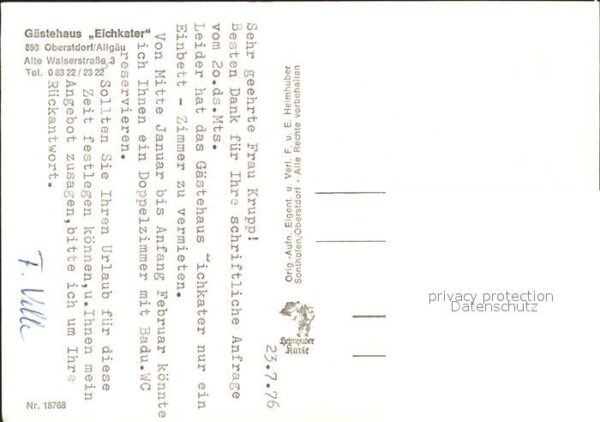 Gästehaus „Eichkater"
898 Oberstdorf/Allgäu
Alte Walserstraße 3
Tel. 0 83 22 / 23 22
23.7.76
Sehr geehrte Frau Krupp!
Besten Dank für Ihre schriftliche Anfrage
vom 20.ds.Mts.
Leider hat das Gästehaus "ichkater nur ein
Einbett - Zimmer zu vermieten.
Von Mitte Januar bis Anfang Februar könnte
ich Ihnen ein Doppelzimmer mit Badu.WC
reservieren.
Sollten Sie Ihren Urlaub für diese
Zeit festlegen können,u.Ihnen mein
Angebot zusagen,bitte ich um Ihre
Rückantwort.
Orig.-Aufn. Eigent. u. Verl. F. u. E. Heimhuber
Sonthofen/Oberstdorf - Alle Rechte vorbehalten
Heimhuber
Karte
privacy protection
Datenschutz
Nr. 18768